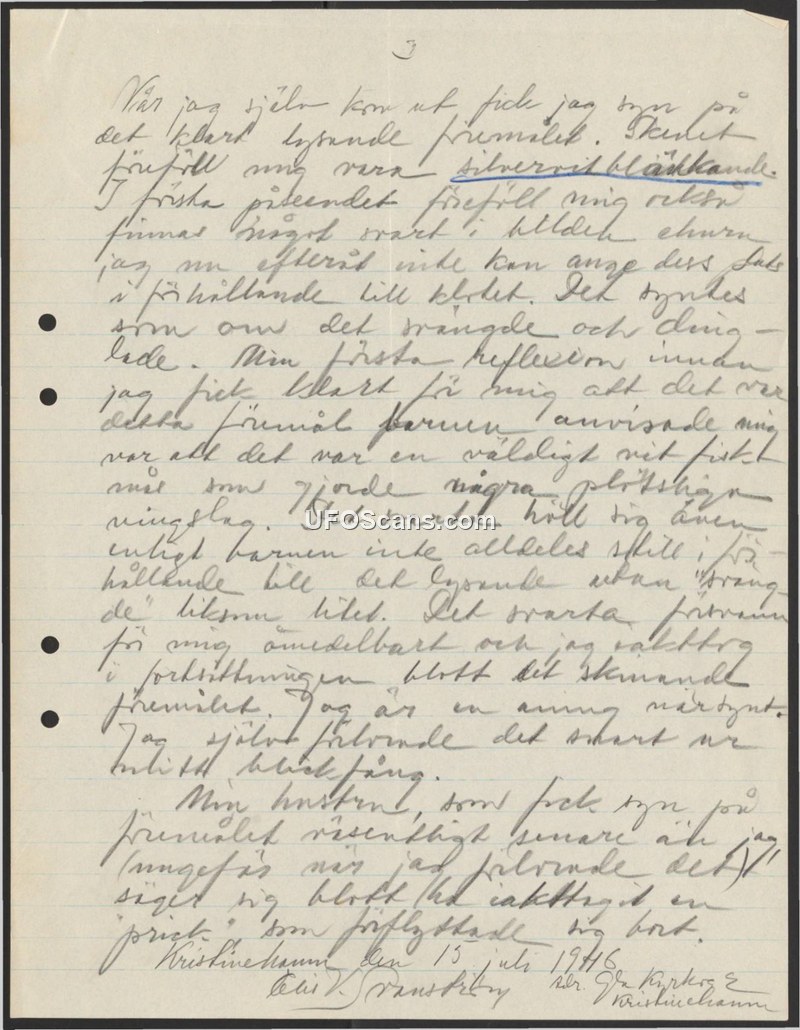 3
När jag själv kom ut fick jag syn på
det klart lysande föremålet. Skenet
föreföll mig vara silvervitblänkande.
I första påseendet föreföll mig också
finnas något svart i bilden ehuru
jag nu efteråt inte kan ange dess plats
i förhållande till klotet. Det syntes
som om det svängde och ding-
lade. Min första reflexion innan
jag fick klart för mig att det var
detta föremål barnen anvisade mig
var att det var en väldigt vit fisk-
mås som gjorde några plötsliga
vingslag. Det svarta höll sig även
enligt barnen inte alldeles still i för-
hållande till det lysande utan "sväng-
de" liksom litet. Det svarta försvann
för mig omedelbart och jag iakttog
i fortsättningen blott det skinande
föremålet. Jag är en aning närsynt.
Jag själv förlorade det snart ur
mitt blickfång.
Min hustru, som fick syn på
föremålet väsentligt senare än jag
(ungefär när jag förlorade det)
säger sig blott ha iakttagit en
"prick", som förflyttade sig bort.
Kristinehamn den 15 juli 1946
Elis V. Svanström
adr. Gla Kyrkog 2
Kristinehamn
UFOScans.com